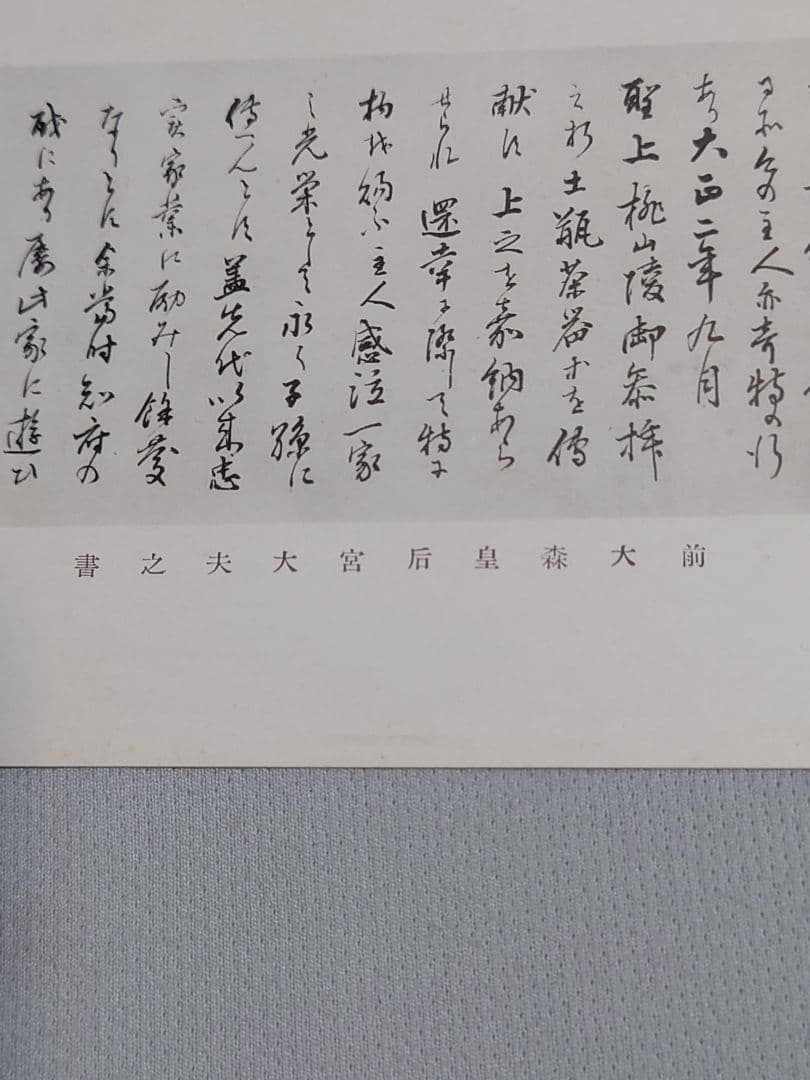 主人亦奇特の行
あり大正二年九月
聖上桃山陵御参拝
之折土瓶茶器を傳
献す上之を嘉納あら
せられ還幸に際して特に
物を賜ふ主人感泣一家
之光栄として永く子孫に
傳へんとす蓋先代以来志
実家業に励みし餘慶
なりとす余当時知府の
職にあり屡此家に遊ひ
前大森皇后宮大夫之書